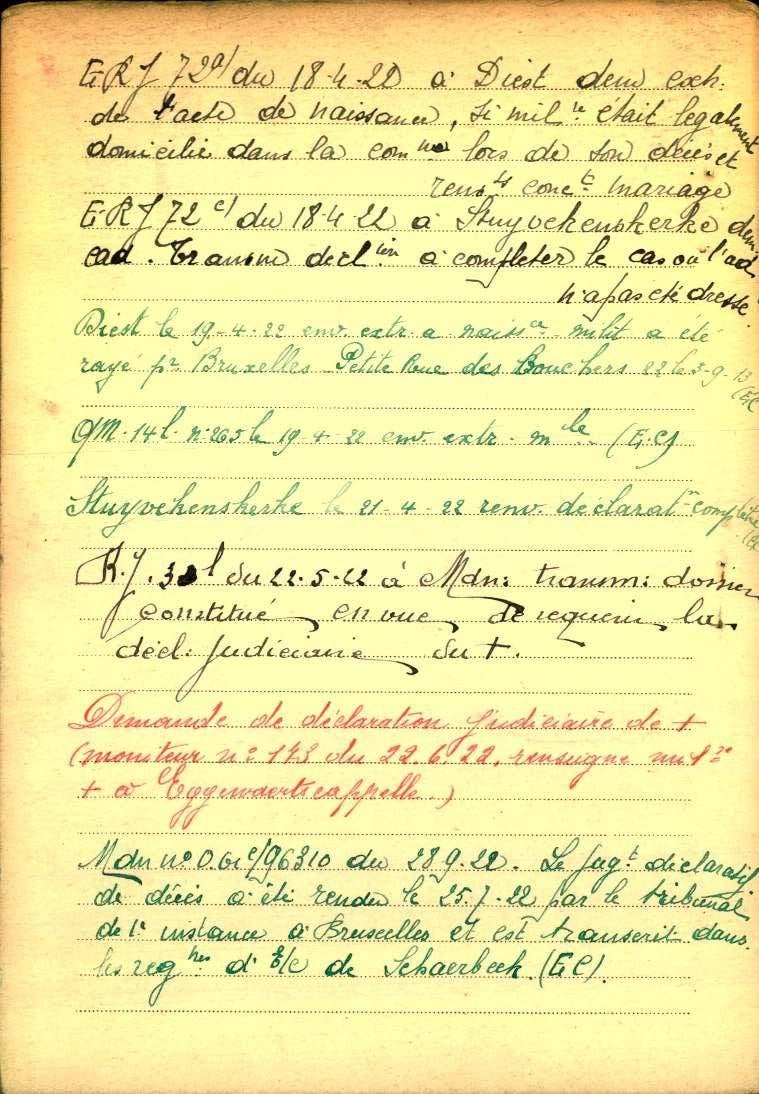 E.R.J 72a/ du 18-4-22 à Diest dem extr.
de l'acte de naissance, si mil re était legalement
domicilié dans la com ne lors de son décès et
rens ts conc t mariage
E.R.J 72 c/ du 18-4-22 à Stuyvekenskerke dem.
ead. Transm decl ion à completer le cas où l'ad
n'a pas été dressé.
Diest le 19-4-22 env. extr. a naiss ce milit a été
rayé pr Bruxelles Petite Rue des Bouchers 22 le 3-9-13
(EC
QM. 14 l. n° 265 le 19-4-22 env. extr. m le (E.C)
Stuyvekenskerke le 21-4-22 renv. déclarat on complétée
(EC
R.J. 3 l du 22-5-22 à Mdn: transm: dossier
constitué en vue de requérir la
décl: judiciaire du +.
Demande de déclaration judiciaire de +
(moniteur n° 173 du 22.6.22, renseigne
+ à Eggewaertscappelle.)
Mdn n° 0.61c/96310 du 28.9.22. Le jug t déclaratif
de décès a été rendu le 25.7.22 par le tribunal
de 1e instance à Bruxelles et est transcrit dans
les reg res d' E/C de Schaerbeek. (EC).